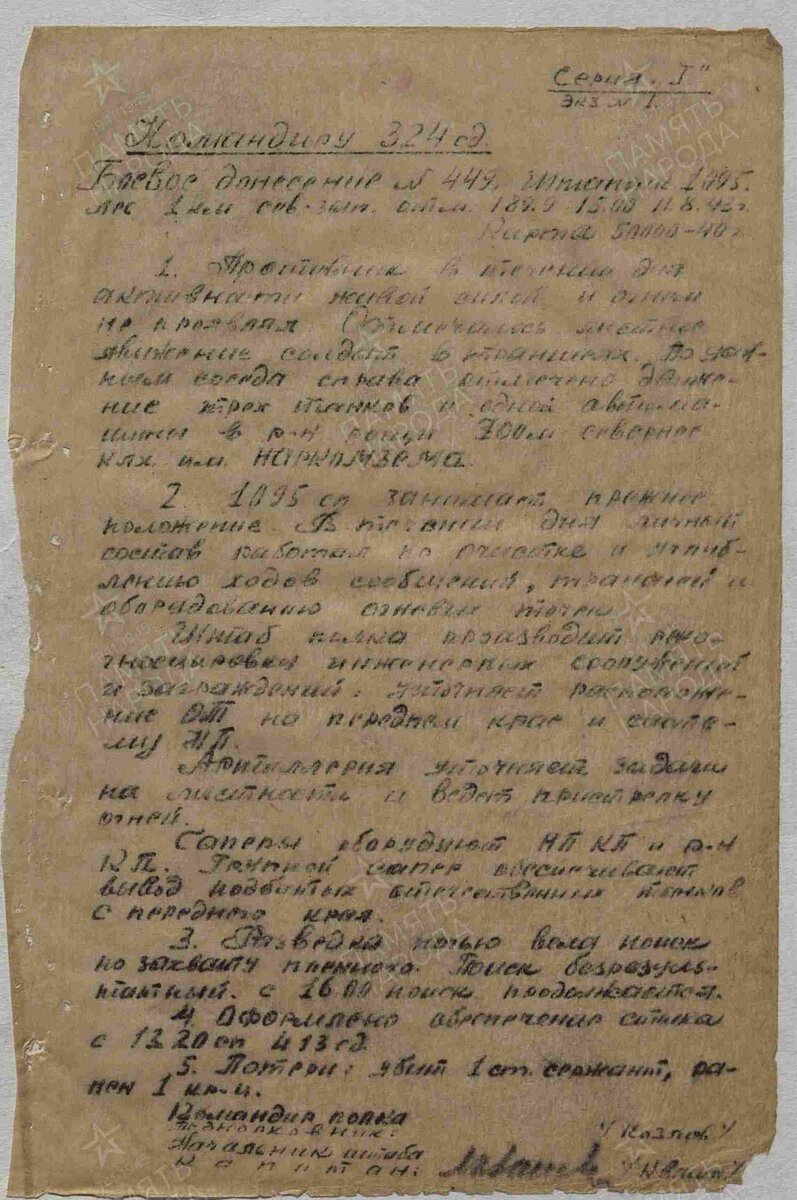 Серия „I"
Экз №1.
Командиру 324 сд.
Боевое донесение № 449. Штадив 1095.
лес 1 км сев-зап. отм. 189.9 15.00 11.8.42г
Карта 50000-40г
1. Противник в течении дня
активности живой силой и огнем
не проявлял. Отмечалось местное
движение солдат в траншеях. По
ным соседа справа отмечено движе-
ние трех танков и одной автома-
шины в р-н рощи 700м севернее
клх. им. НАРКОМЗЕМА.
2. 1095 сп занимает прежнее
положение. В течении дня личный
состав работал по очистке и углуб-
лению ходов сообщений, траншей и
оборудованию огневых точек.
Штаб полка производит реко-
гносцировки инженерных сооружений
и заграждений: уточняет расположе-
ние ОТ на переднем крае и систе-
му НП.
Артиллерия уточняет задачи
на местности и ведет пристрелку
огней.
Саперы оборудуют НП КП и р-н
КП. Группой сапер обеспечивают
вывод подбитых отечественных танков
с переднего края.
3. Разведка ночью вела поиск
по захвату пленного. Поиск безрезуль-
татный. с 16 00 поиск продолжается.
4. Оформлено обеспечение стыка
с 1320 сп 413 сд.
5. Потери: убит 1 ст. сержант, ра-
нен 1 кр-ц.
Командир полка
Подполковник: /Козлов/
Начальник штаба
Капитан:
ПАМЯТЬ
НАРОДА